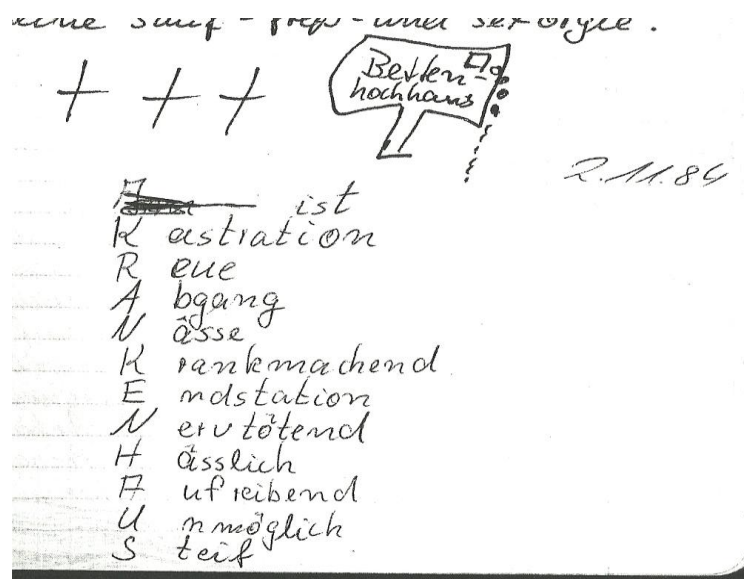 eine Sauf-Freß-und Sexorgie.
Betten-
hochhaus
2.11.84
ist
K astration
R eue
A bgang
N ässe
K rankmachend
E ndstation
N ervtötend
H ässlich
A ufreibend
U nmöglich
S teif